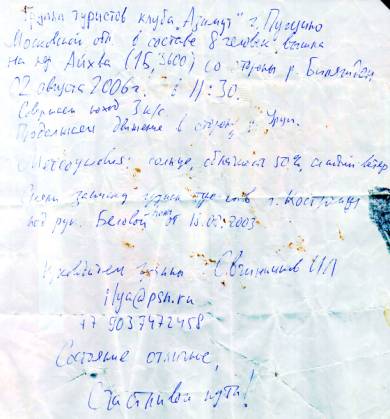 Группа туристов клуба „Азимут" г. Пущино
Московской обл. в составе 8 человек вышла
на пер. Айхва (1Б, 3600) со стороны р.
02 августа 2006г. в 11:30.
Совершаем поход 3 к/с
Продолжаем движение в сторону
Метеоусловия: солнце, облачность 50%, слабый ветер
Сняли записку группы туристов г. Кострома
под рук. Беловой от 15.08.2003
Руководитель группы Овчинников ИЛ
ilya@psn.ru
+7 9037472458
Состояние отличное,
Счастливого пути!